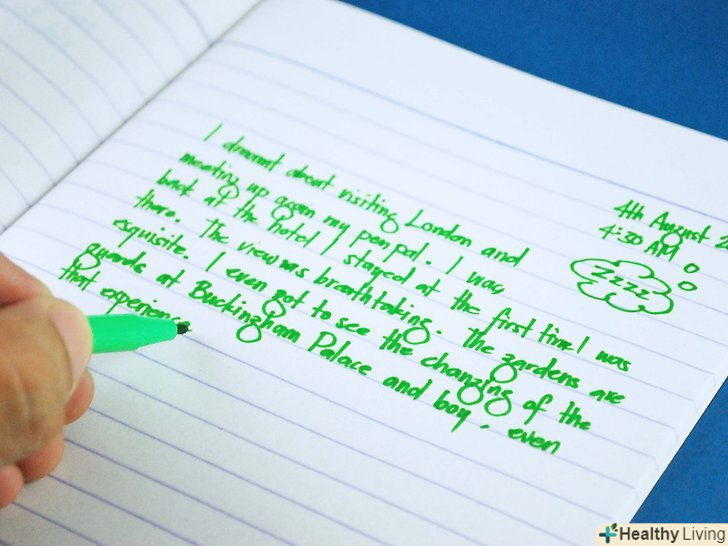 4th August 2
4:30 AM
zzzz
I dreamt about visiting London and
meeting up again my pen pal. I was
back at the hotel I stayed at the first time I was
there. The view was breathtaking. The gardens are
exquisite. I even got to see the changing of the
guards at Buckingham Palace and boy, even
that experience
Healthy Living